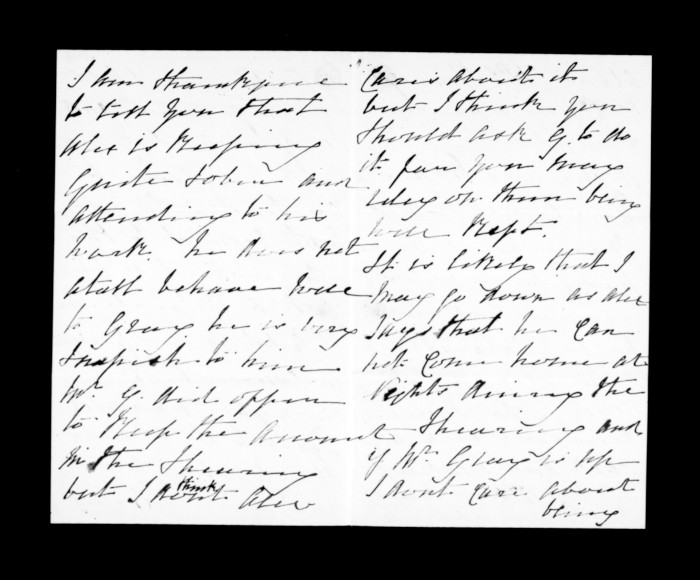 I am thankfull
to tell you that
Alex is Keeping
Quite sober and
attending to his
work. he does not
atall behave well
to Gray he is very
Snapish to him
Mr. G. did offer
to Keep the Account
in the Shearing
but I dont think Alex
Cares about it
but I think you
Should ask G. to do
it for you may
reley on them being
well Kept.
It is likely that I
may go down as Alex
Says that he Can
not Come home at
Nights during the
Shearing and
if Mr. Gray is up
I dont Care about
being